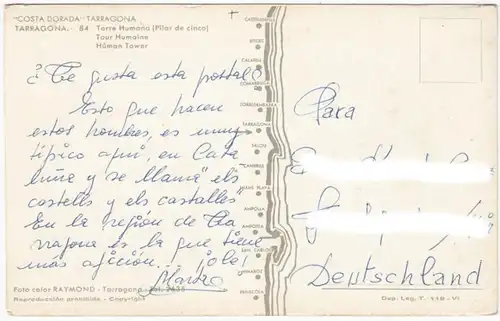 "COSTA DORADA" TARRAGONA
TARRAGONA. 84 Torre Humana (Pilar de cinco)
Tour Humaine
Húman Tower
¿Te gusta esta postal?
Esto que hacen
estos hombres, es muy
típico aquí, en Cata
luña y se llama "els
castells y els castalles"
En la región de Ta
rragona es la que tiene
más afición... ¡olé!
Foto color RAYMOND - Tarragona - Tel. 2635
Reproducción prohibida - Copyright
CALAFELL
TORREDEMBARRA
TARRAGONA
SALOU
CAMBRILS
AMPOLLA
AMPOSTA
SAN CARLOS
VINAROZ
PEÑISCOLA
Para
Deutschland
Dep. Leg. T. 118 - VI